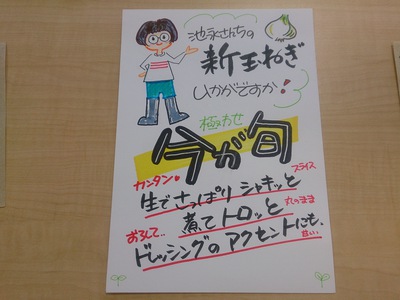 池永さんちの
新玉ねぎ
いかがですか!
極わせ
今が旬
カンタン スライス
生でさっぱり シャキッと
煮てトロッと 丸のまま
おろして..
ドレッシングの アクセントにも.
旨い.